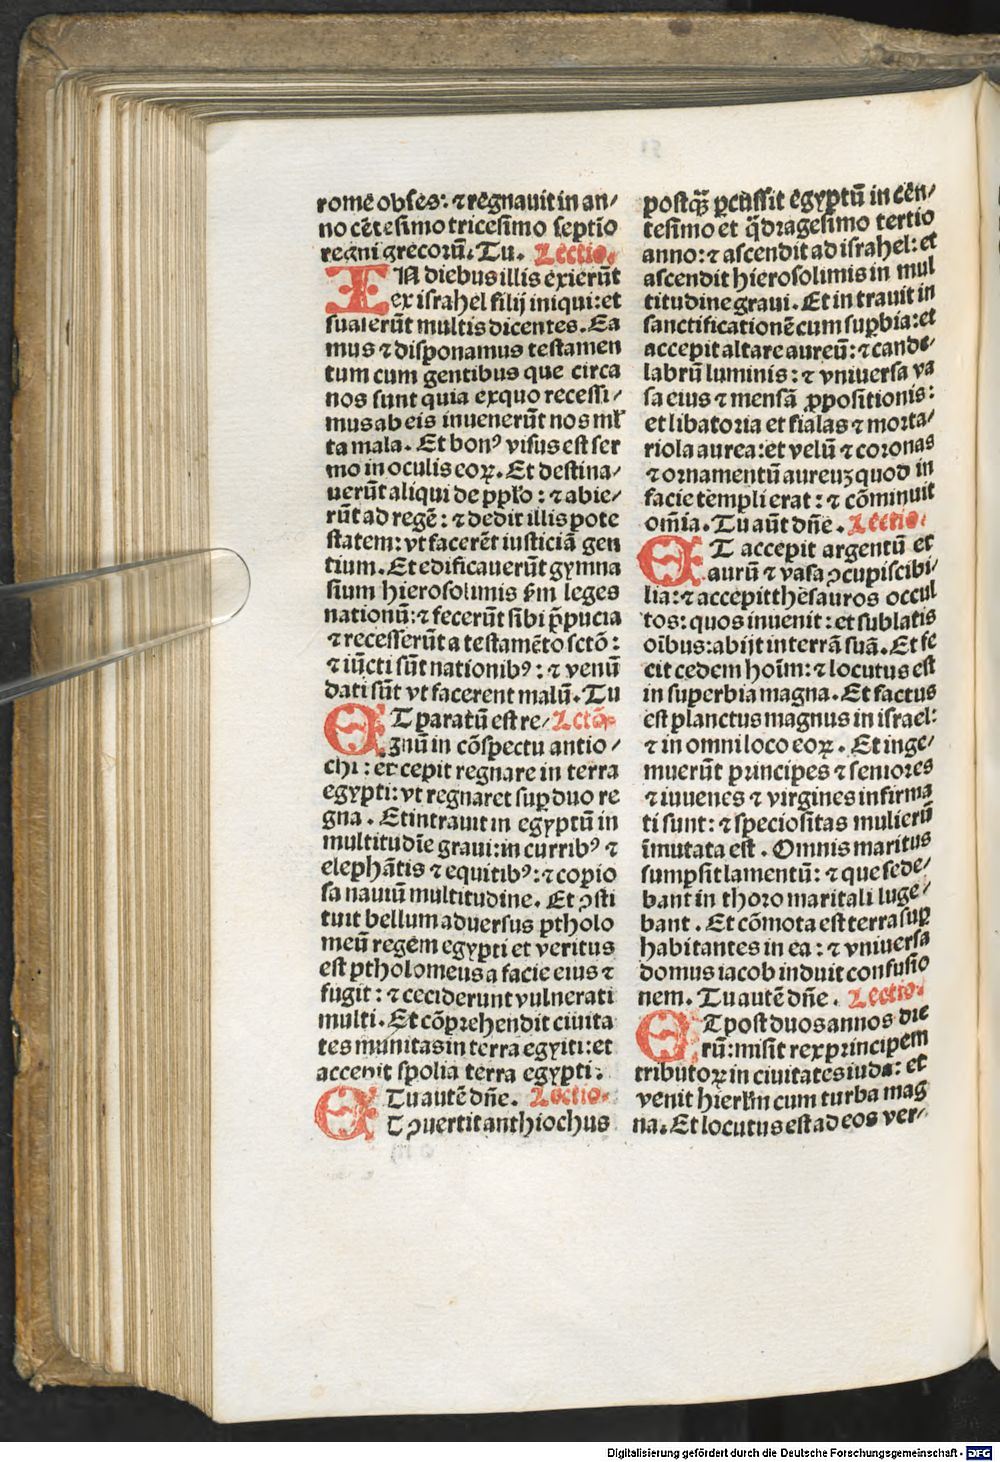 rome obses: ⁊ regnauit in an/
no cētesimo tricesimo septio
regni grecorū. Tu. Lectio.
IN diebus illis exierūt
ex israhel filij iniqui: et
suaserūt multis dicentes. Ea
mus ⁊ disponamus testamen
tum cum gentibus que circa
nos sunt quia exquo recessi/
mus ab eis inuenerūt nos ml̕
ta mala. Et bonꝰ visus est ser
mo in oculis eoꝝ. Et destina/
uerūt aliqui de pp̄lo: ⁊ abie/
rūt ad regē: ⁊ dedit illis pote
statem: vt facerēt iusticiā gen
tium. Et edificauerūt gymna
sium hierosolimis s̄m leges
nationū: ⁊ fecerūt sibi p̄pucia
⁊ recesserūt a testamēto sctō:
⁊ iūcti sūt nationibꝰ: ⁊ venū
dati sūt vt facerent malū. Tu
ET paratū est re/ Lctō.
gnū in cōspectu antio/
chi: et cepit regnare in terra
egypti: vt regnaret suꝑ duo re
gna. Et intrauit in egyptū in
multitudīe graui: in curribꝰ ⁊
elephātis ⁊ equitibꝰ: ⁊ copio
sa nauiū multitudine. Et ꝯsti
tuit bellum aduersus ptholo
meū regem egypti et veritus
est ptholomeus a facie eius ⁊
fugit: ⁊ ceciderunt vulnerati
multi. Et cōprehendit ciuita
tes munitas in terra egyiti: et
accepit spolia terra egypti:
Tu autē dn̄e. Lectio.
ET ꝯuertit anthiochus
postqꝫ̄ ꝑcussit egyptū in cen/
tesimo et q̄dragesimo tertio
anno: ⁊ ascendit ad israhel: et
ascendit hierosolimis in mul
titudine graui. Et intrauit in
sanctificationē cum suꝑbia: et
accepit altare aureū: ⁊ cande/
labrū luminis: ⁊ vniuersa va
sa eius ⁊ mensā ꝓpositionis:
et libatoria et fialas ⁊ morta/
riola aurea: et velū ⁊ coronas
⁊ ornamentū aureuꝫ quod in
facie templi erat: ⁊ cōminuit
om̄ia. Tu aūt dn̄e. Lectio.
ET accepit argentū et
aurū ⁊ vasa ꝯcupiscibi/
lia: ⁊ accepit thesauros occul
tos: quos inuenit: et sublatis
oībus: abijt in terrā suā. Et fe
cit cedem hoīm: ⁊ locutus est
in superbia magna. Et factus
est planctus magnus in israel:
⁊ in omni loco eoꝝ. Et inge/
muerūt principes ⁊ seniores
⁊ iuuenes ⁊ virgines infirma
ti sunt: ⁊ speciositas mulierū
īmutata est. Omnis maritus
sumpsit lamentū: ⁊ que sede/
bant in thoro maritali luge/
bant. Et cōmota est terra suꝑ
habitantes in ea: ⁊ vniuersa
domus iacob induit confusio
nem. Tu autē dn̄e. Lectio.
ET post duos annos die
rū: misit rex principem
tributoꝝ in ciuitates iuda: et
venit hierl̄m cum turba mag
na. Et locutus est ad eos ver/
Digitalisierung gefördert durch die Deutsche Forschungsgemeinschaft - DFG